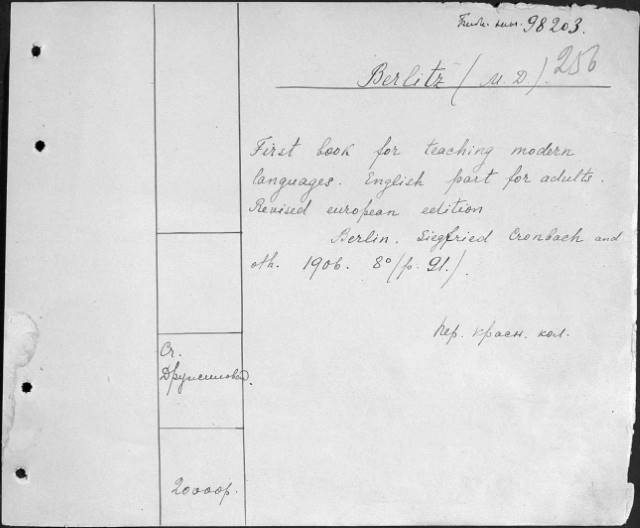 98203.
256
Berlitz (M. D.)
First book for teaching modern
languages. English part for adults.
Revised european edition
Berlin. Siegfried Cronbach and
oth. 1906. 8° (p. 91.)
пер. красн. кол.
От.
20000р.